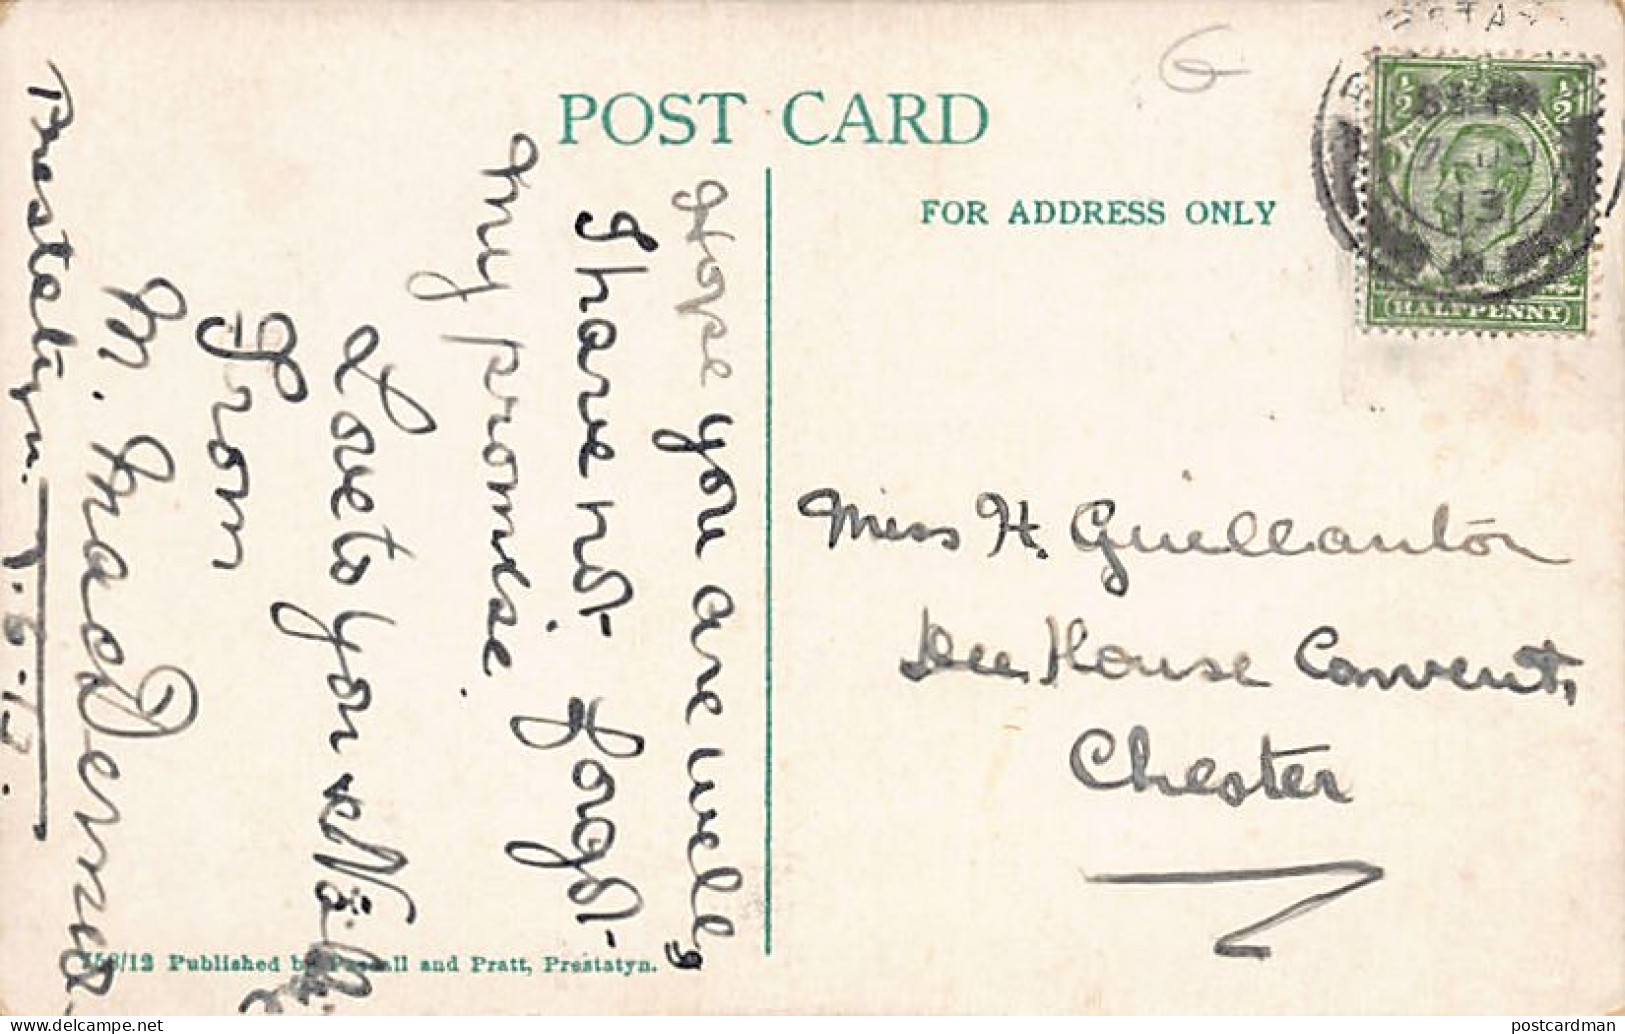 POST CARD
FOR ADDRESS ONLY
½ ½
13
HALFPENNY
Hope you are well,
I have not forgot
my promise.
Love to you & Nellie
From
M. MacDermott
Prestatyn. 7.6.13.
Miss H.
Dee House Convent,
Chester
/12 Published by and Pratt, Prestatyn.
postcardman
www.delcampe.net